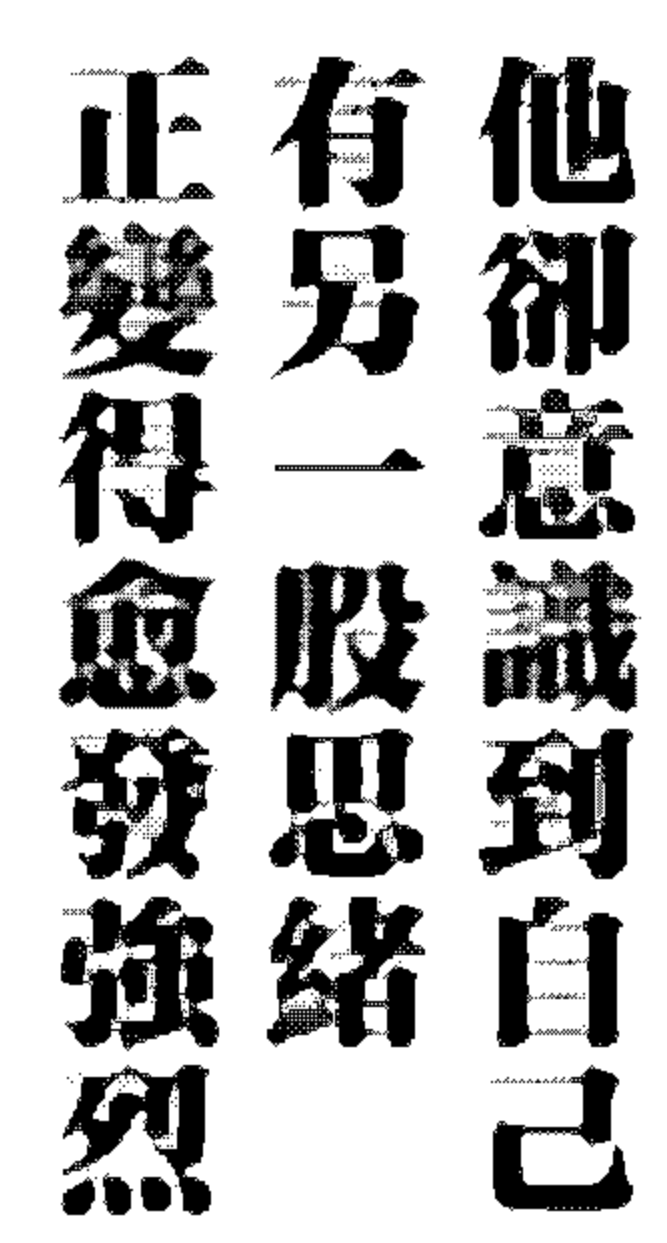 他卻意識到自己
有另一股思緒
正變得愈發強烈